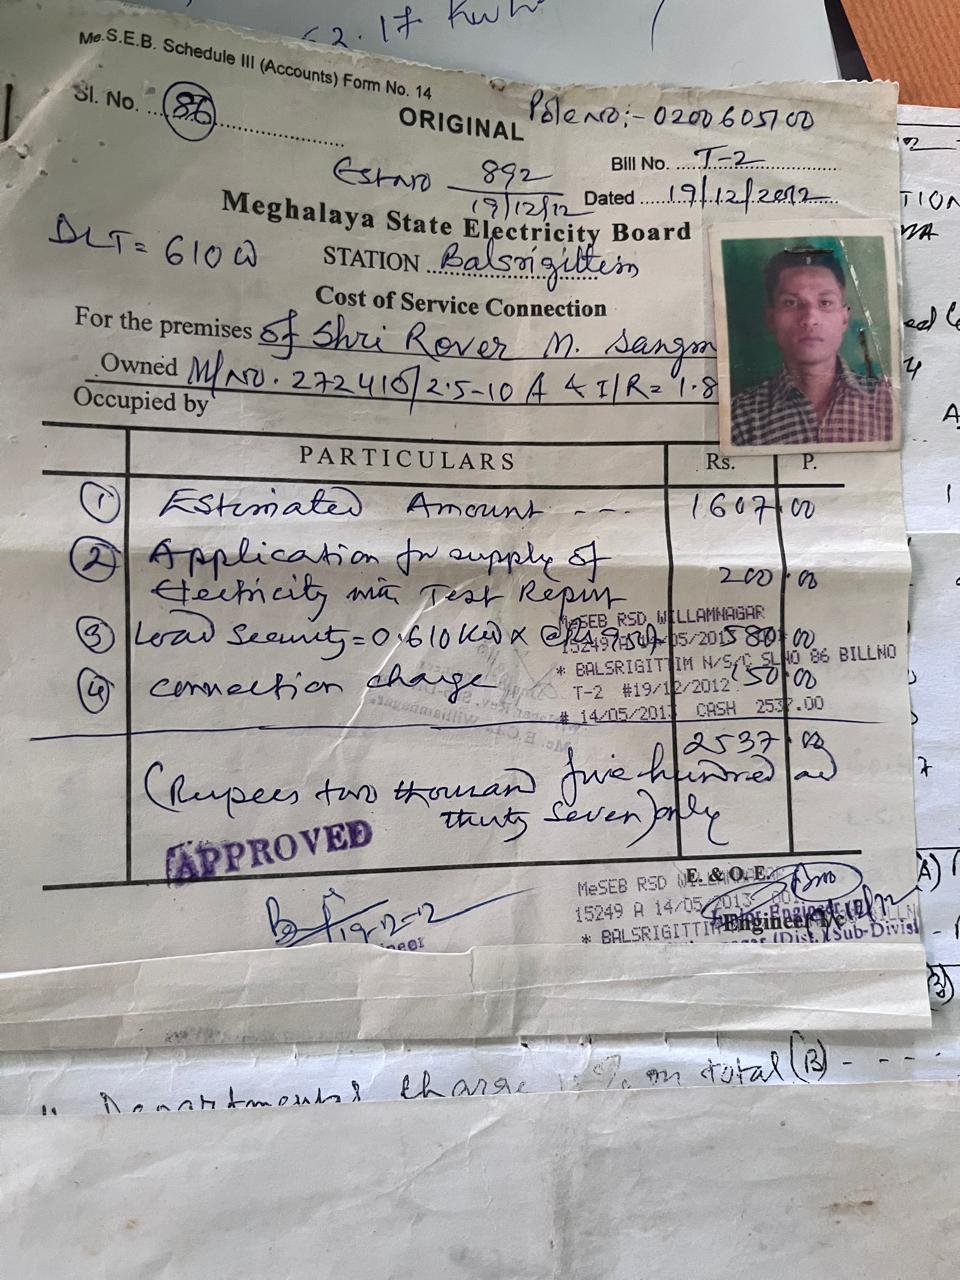 62.17 Kwh
Me.S.E.B. Schedule III (Accounts) Form No. 14
Sl. No. ... 86 ...
ORIGINAL
Pole no :- 0200605700
Est no 892
19/12/12
Bill No. ... T-2 ...
Dated ... 19/12/2012 ...
Meghalaya State Electricity Board
DLT = 610 W
STATION ... Balsrigittim
Cost of Service Connection
For the premises of Shri Rover M. Sangm
Owned M/NO. 272410/2.5-10 A & I/R = 1.8
Occupied by
PARTICULARS Rs. P.
1 Estimated Amount --- 1607.00
2 Application for supply of
Electricity with Test Report 200.00
MeSEB RSD WILLAMNAGAR
3 Load Security = 0.610 KW x @Rs 950/- 580.00
15249 05/2013
* BALSRIGITTIM N/S/C SLNO 86 BILLNO
4 connection charge 150.00
T-2 #19/12/2012
# 14/05/2013 CASH 2537.00
2537.00
(Rupees two thousand five hundred and
thirty seven) only
APPROVED
E. & O. E.
MeSEB RSD WILLAMNAGAR
15249 A 14/05/2013
19-12-12
Junior Engineer (E)
Engineer I/c
* BALSRIGITTIM
(Dist.) Sub-Divisi
Departmental charge % on total (B) ----